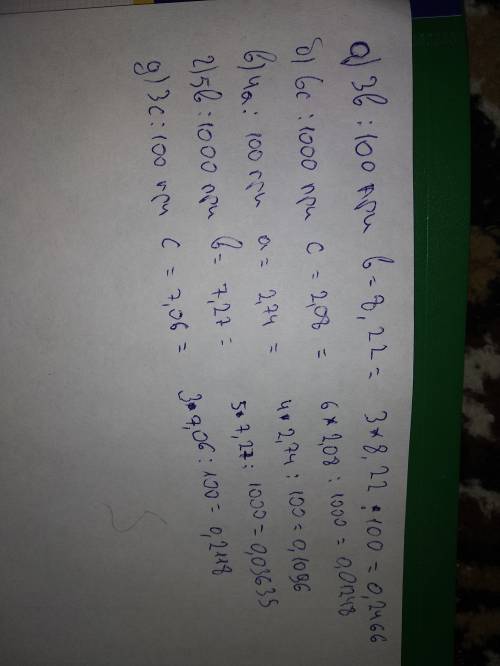 а) 3b : 100 при b = 8,22 = 3*8,22 : 100 = 0,2466
б) 6c : 1000 при c = 2,08 = 6*2,08 : 1000 = 0,01248
в) 4a : 100 при a = 2,74 = 4*2,74 : 100 = 0,1096
г) 5b : 1000 при b = 7,27 = 5*7,27 : 1000 = 0,03635
д) 3c : 100 при c = 7,06 = 3*7,06 : 100 = 0,2118